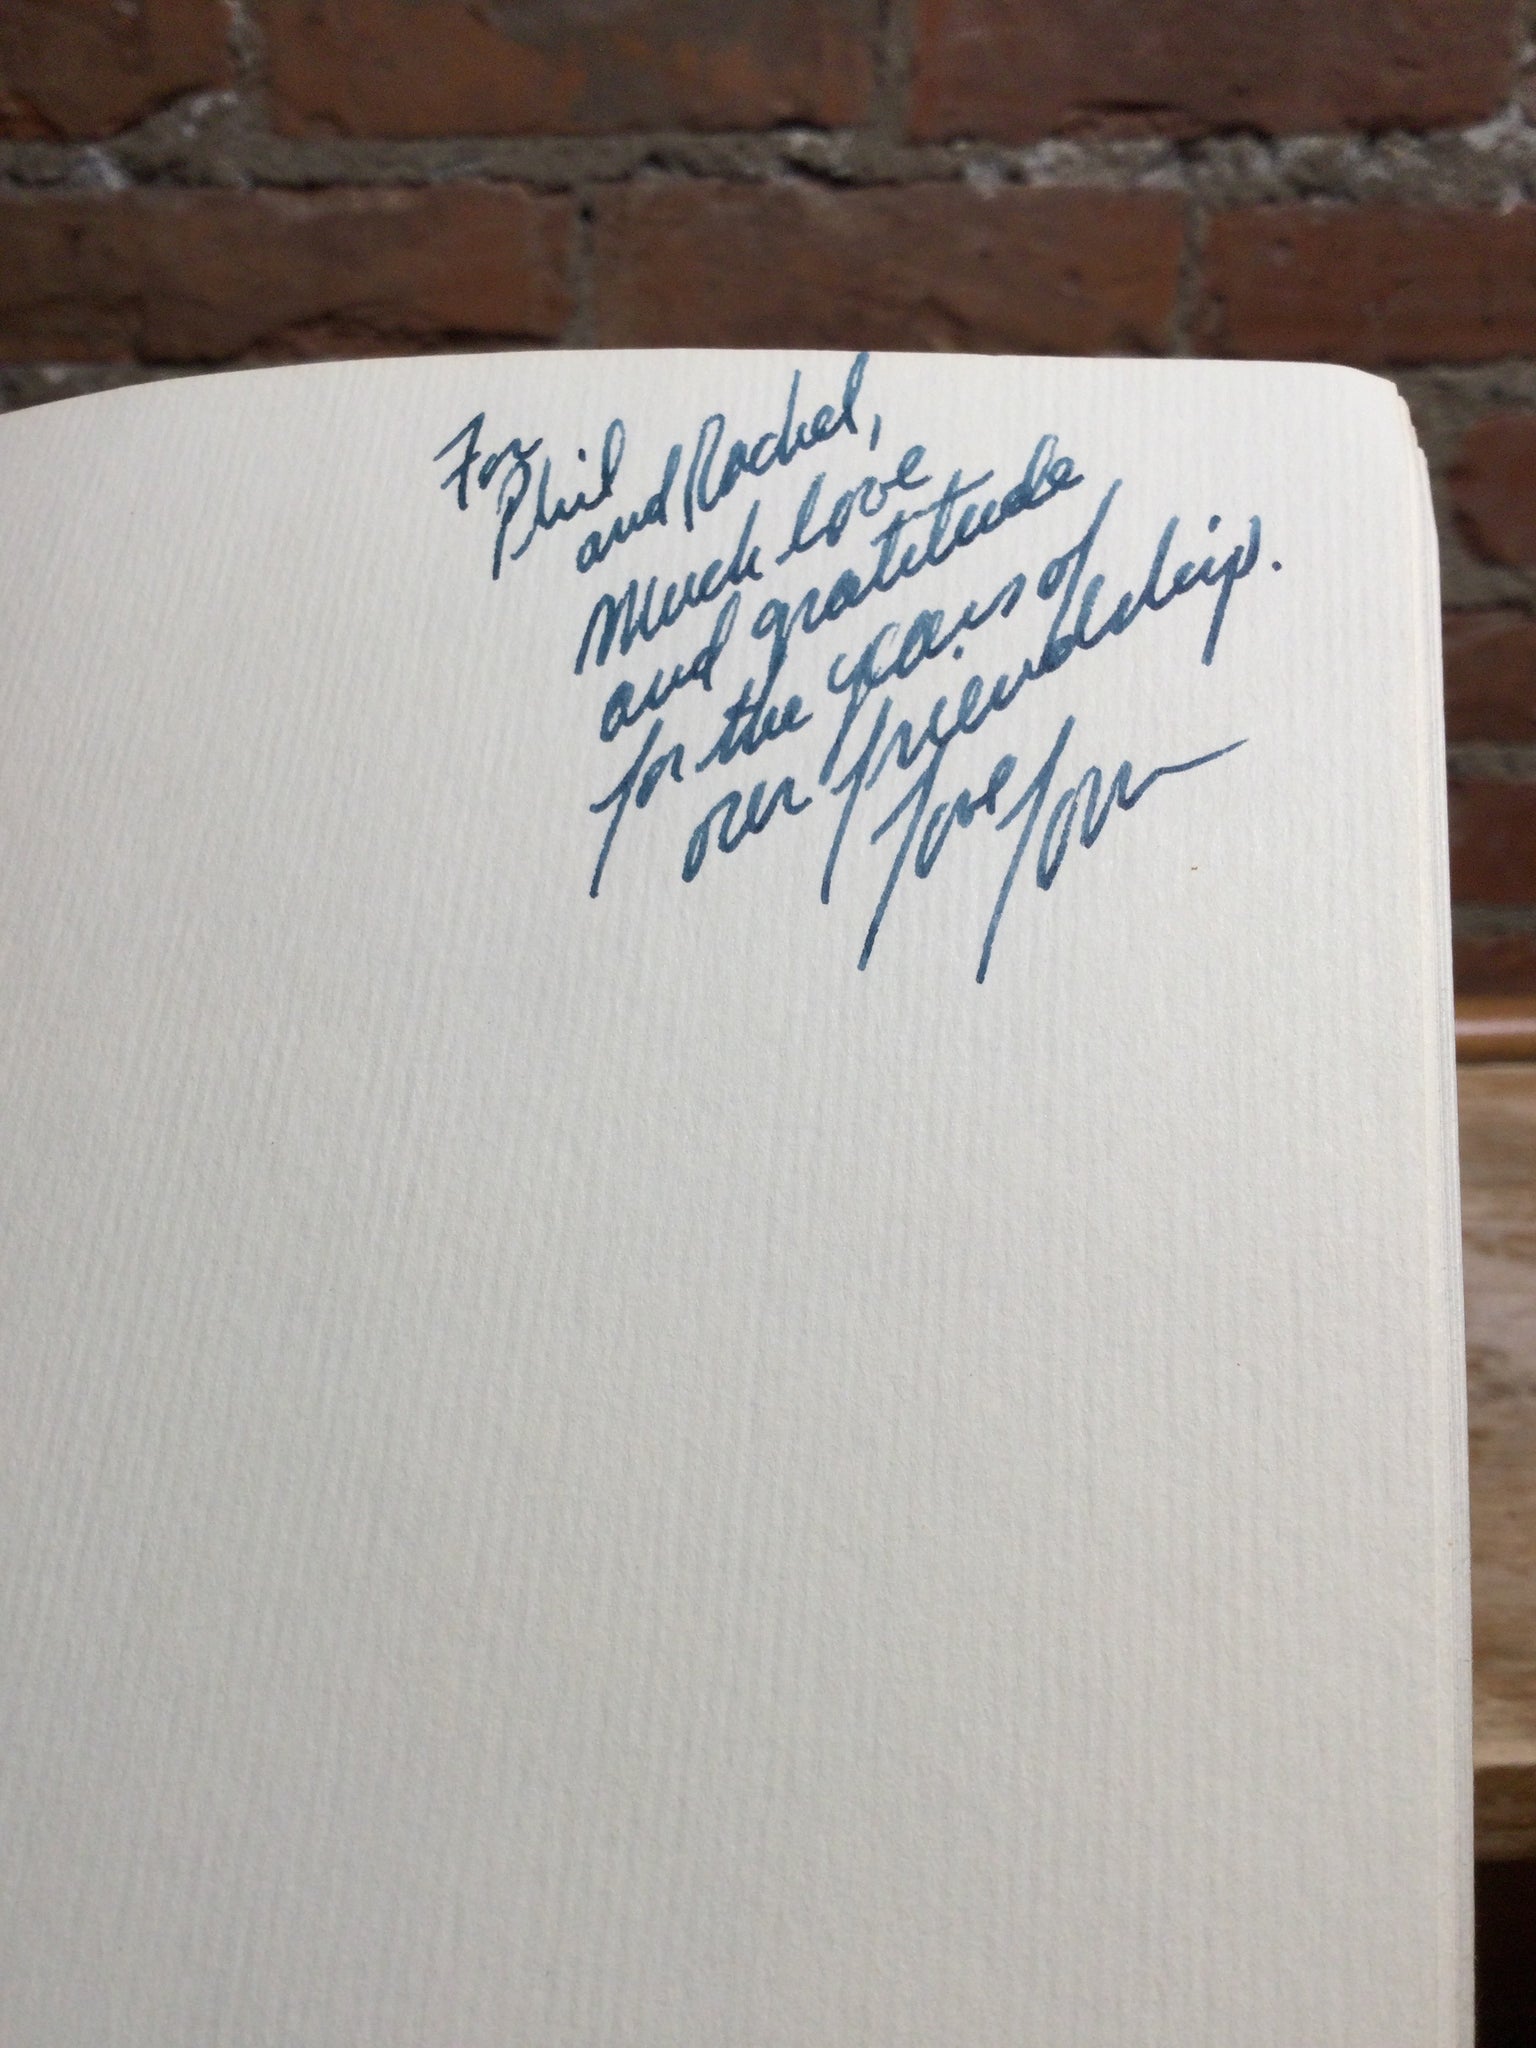 For
Phil
and Rachel,
Much love
and gratitude
for the years of
our friendship.
Love